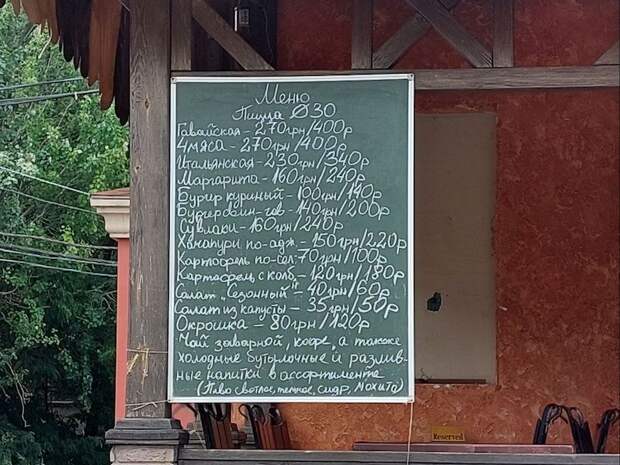 Меню
Пицца Ø30
Гавайская - 270грн/400р
4 мяса - 270грн/400р
Итальянская - 230грн/340р
Маргарита - 160грн/240р
Бургер куриный - 100грн/140р
140грн/200р
Сувлаки - 160грн/240р
Хачапури по-адж. - 150грн/220р
Картофель по-сел. 70грн/100р
Картофель с колб. - 120грн/180р
Салат "Сезонный" - 40грн/60р
Салат из капусты - 35грн/50р
Окрошка - 80грн/120р
Чай заварной, кофе, а также
холодные бутылочные и разлив-
ные напитки в ассортименте
(Пиво светлое, темное, сидр, Мохито)
Reserved